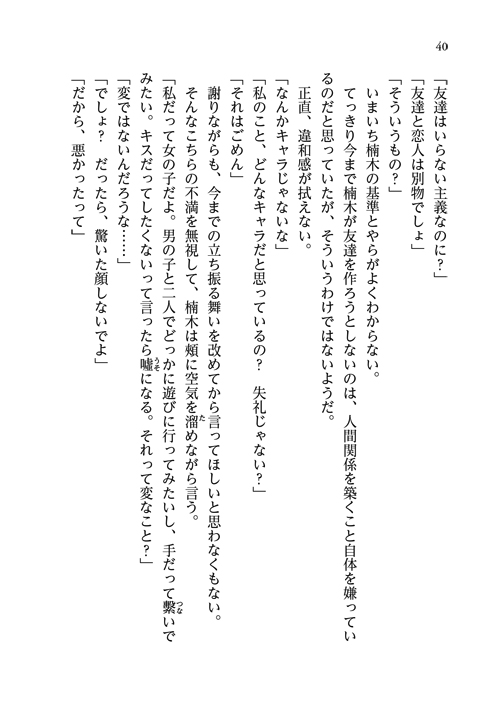 40
「友達はいらない主義なのに？」
「友達と恋人は別物でしょ」
「そういうもの？」
　いまいち楠木の基準とやらがよくわからない。
　てっきり今まで楠木が友達を作ろうとしないのは、人間関係を築くこと自体を嫌ってい
るのだと思っていたが、そういうわけではないようだ。
　正直、違和感が拭えない。
「なんかキャラじゃないな」
「私のこと、どんなキャラだと思っているの？　失礼じゃない？」
「それはごめん」
　謝りながらも、今までの立ち振る舞いを改めてから言ってほしいと思わなくもない。
　そんなこちらの不満を無視して、楠木は頰に空気を溜めながら言う。
「私だって女の子だよ。男の子と二人でどっかに遊びに行ってみたいし、手だって繫いで
みたい。キスだってしたくないって言ったら噓になる。それって変なこと？」
「変ではないんだろうな……」
「でしょ？　だったら、驚いた顔しないでよ」
「だから、悪かったって」